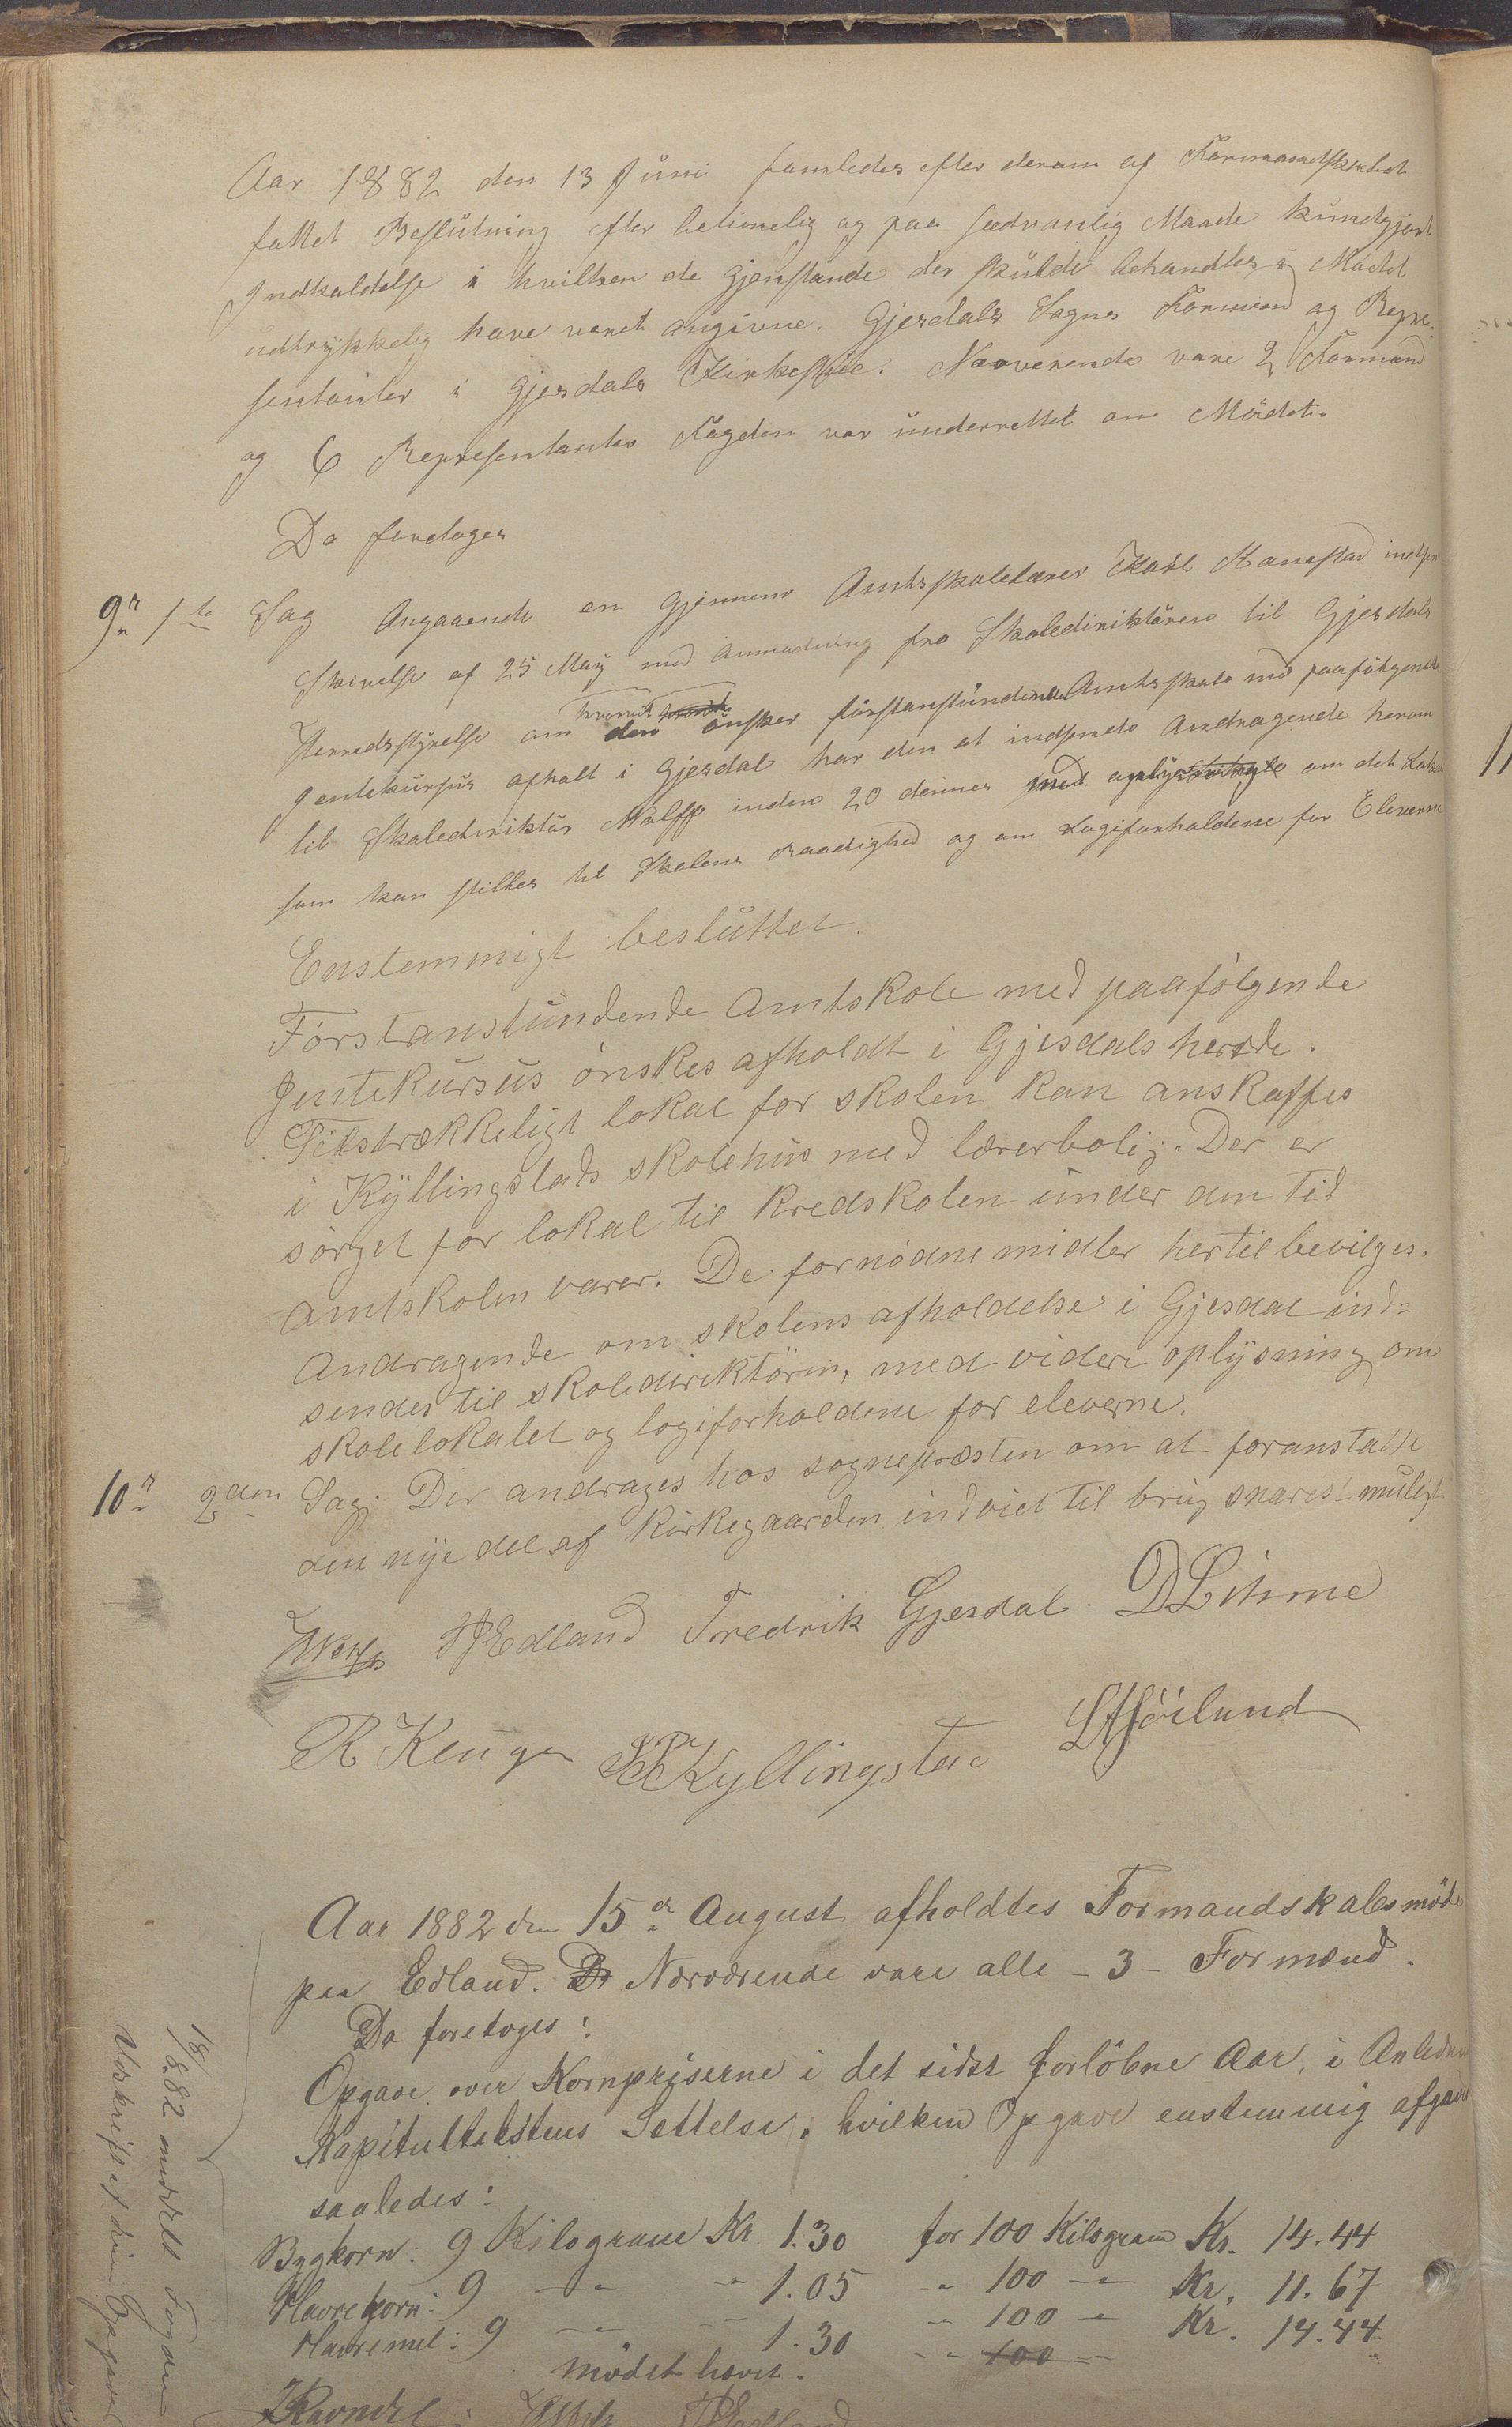 Aar 1882 den 13 Juni samledes efter derom af Formandskabet
fattet Beslutning efter betimelig og paa sædvanlig Maade kundgjort
Indkaldelse i hvilken de Gjenstande der skulde behandles i Mødet
udtrykkelig have været angivne. Gjesdals Sogns Formænd og Repre-
sentanter i Gjesdals Kirkestue. Nærverende vare 2 Formænd
og 6 Representanter Fogden var underrettet om Mödet.
Da foretoges
9n 1te Sag Angaaende en gjennem Amtsskolelærer Karl Kanestad
Skrivelse af 25 Maÿ med Anmodning fra Skoledirektören til Gjesdals
Herredsstyrelse om hvorvidt den önsker förstanstundende Amtsskole med paafölgende
Jentekursus afholt i Gjesdal har den at indsende Andragende herom
til Skoledirektör Wolff inden 20 dennes med oplysning om det Lokale
som kan stilles til Skolens Raadighed og om Logiforholdene for Eleverne
Enstemmigt besluttet.
Förstanstundende Amtskole med paafölgende
Jentekursus önskes afholdt i Gjesdals herede.
Tilstrækkeligt lokal for skolen kan anskaffes
i Kÿllingstads skolehus med lærerbolig. Der er
sörget for lokal til Kredskolen under den tid
amtskolen varer. De fornödne midler hertil bevilges.
Andragende om skolens afholdelse i Gjesdal ind=
sendes til skoledirektören, med videre oplÿsning om
skolelokalet og logiforholdene for eleverne.
10n 2den Sag. Der andrages hos sognepræsten om at foranstalte
den nÿe del af Kirkegaarden indviet til brug snarest muligt
Edland Fredrik Gjesdal. D Lihme
R Kenger Kyllingstad
Aar 1882 den 15de August afholdtes Formandskabsmöde
paa Edland. Nærværende vare alle - 3 - Formænd.
Da foretoges:
Opgave over Kornpriserne i det sidst forlöbne Aar, i Anledn
Kapitultakstens Settelse, hvilken Opgave enstemmig afgaves
saaledes:
Bygkorn: 9 Kilogram Kr. 1.30 for 100 Kilogram Kr. 14.44
Havrekorn: 9 - " - " 1.05 - " 100 - " Kr. 11.67
Havremel: 9 - " - 1.30 - " 100 - " Kr. 14.44
- " 100 -
mödet hævet.
Ravndal
18/8 82 meddelt Fogden
Udskrift af den Opgave